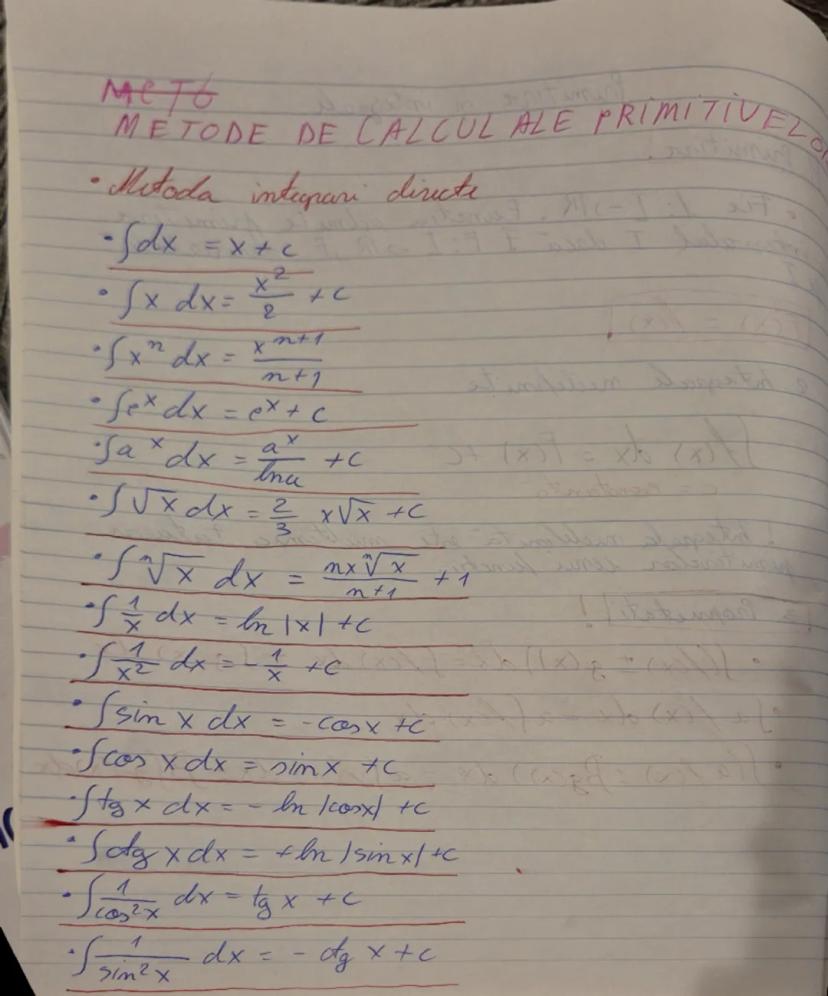 METODE DE CALCUL ALE PRIMITIVELOR
• Metoda integrari directe
• ∫dx = x + c
• ∫x dx = x²/2 + c
• ∫xⁿ dx = xⁿ⁺¹/n+1
• ∫eˣ dx = eˣ + c
• ∫aˣ dx = aˣ/ln a + c
• ∫√x dx = 2/3 x√x + c
• ∫ⁿ√x dx = nxⁿ√x/n+1 + 1
• ∫1/x dx = ln |x| + c
• ∫1/x² dx = -1/x + c
• ∫sin x dx = -cosx + c
• ∫cos x dx = sinx + c
• ∫tg x dx = - ln |cosx| + c
• ∫ctg x dx = +ln |sin x| + c
• ∫1/cos²x dx = tg x + c
• ∫1/sin²x dx = - ctg x + c